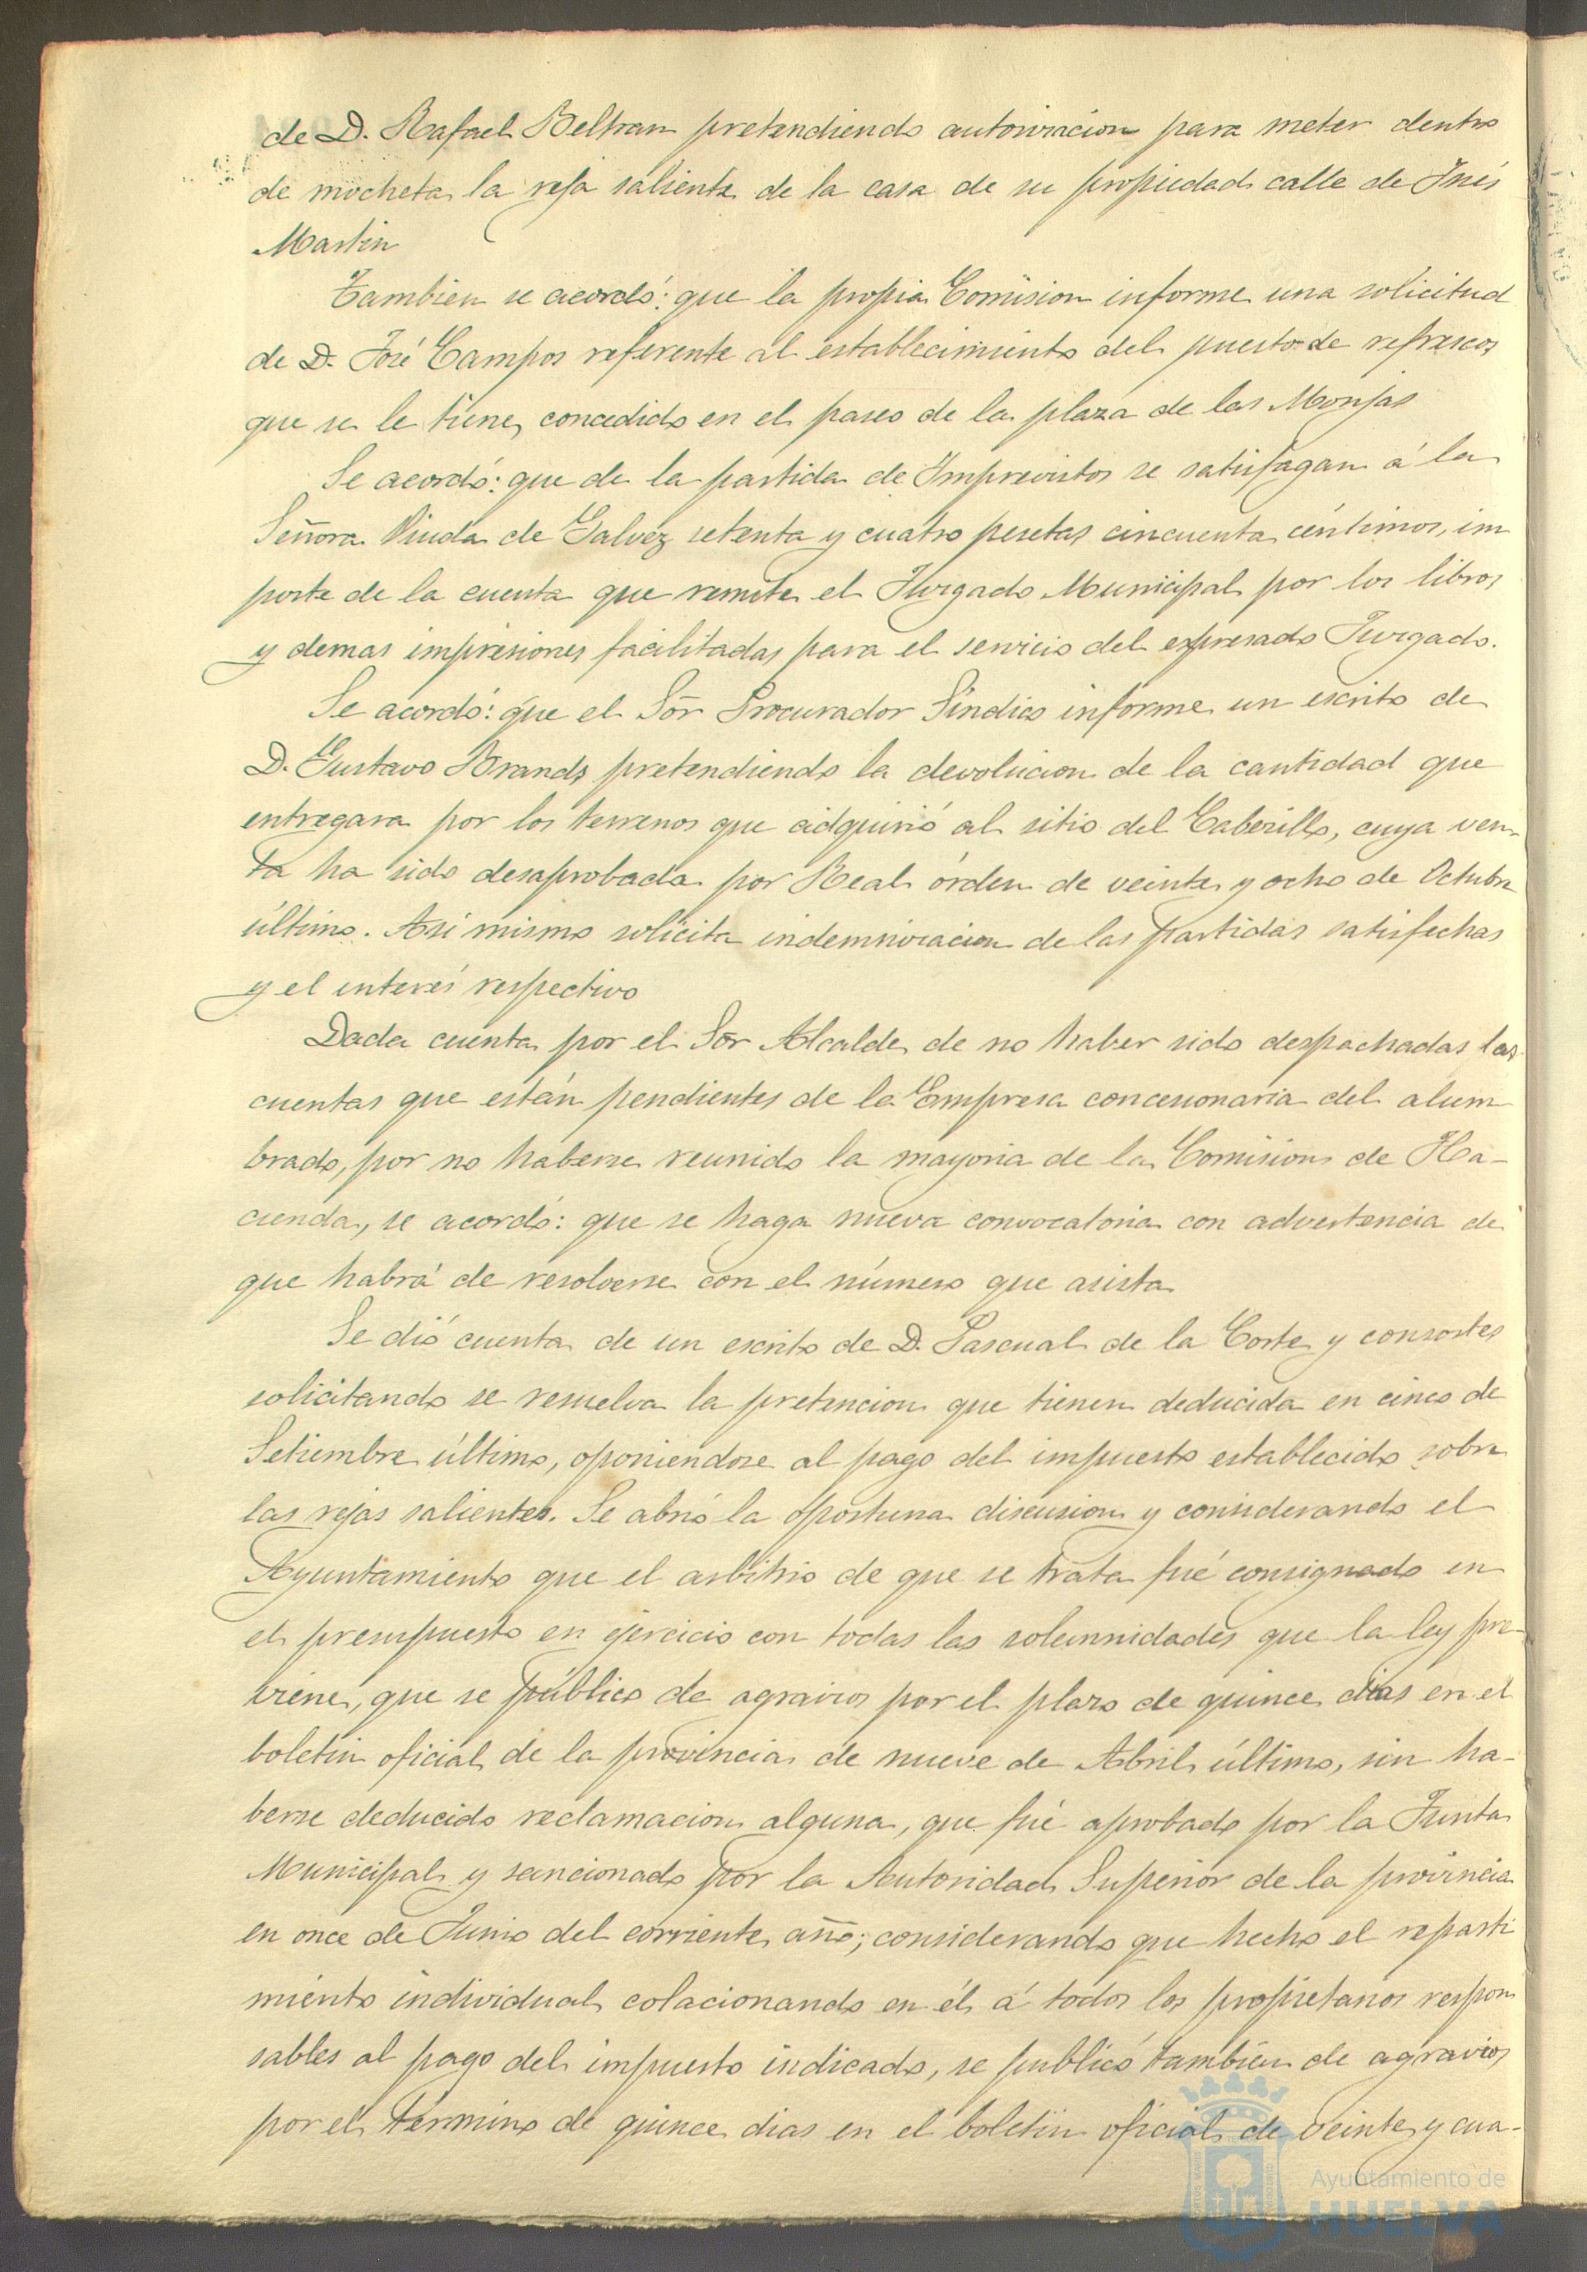 de D. Rafael Beltran pretendiendo autorizacion para meter dentro
de mocheta la reja saliente de la casa de su propiedad calle de Inés
Martin
Tambien se acordó: que la propia Comision informe una solicitud
de D. José Campos referente al establecimiento del puesto de refrescos
que se le tiene concedido en el paseo de la plaza de las Monjas
Se acordó: que de la partida de Imprevistos se satisfagan á la
Señora Viuda de Galvez setenta y cuatro pesetas cincuenta céntimos, im
porte de la cuenta que remite el Juzgado Municipal por los libros
y demas impresiones facilitadas para el servicio del expresado Juzgado.
Se acordó: que el Sõr Procurador Síndico informe un escrito de
D. Gustavo Brands pretendiendo la devolucion de la cantidad que
entregara por los terrenos que adquirió al sitio del Cabezillo, cuya ven-
ta ha sido desaprobada por Real órden de veinte y ocho de Octubre
último. Asi mismo solicita indemnizacion de las partidas satisfechas
y el interés respectivo
Dada cuenta por el Sõr Alcalde de no haber sido despachadas las
cuentas que están pendientes de la Empresa concesionaria del alum
brado, por no haberse reunido la mayoria de la Comision de Ha-
cienda, se acordó: que se haga nueva convocatoria con advertencia de
que habrá de resolverse con el número que asista
Se dió cuenta de un escrito de D. Pascual de la Corte y consortes
solicitando se resuelva la pretencion que tienen deducida en cinco de
Setiembre último, oponiendose al pago del impuesto establecido sobre
las rejas salientes. Se abrió la oportuna discusion y considerando el
Ayuntamiento que el arbitrio de que se trata fué consignado en
el presupuesto en ejercicio con todas las solemnidades que la ley pre-
viene, que se público de agravios por el plazo de quince dias en el
boletin oficial de la provincia de nueve de Abril último, sin ha-
berse deducido reclamacion alguna, que fué aprobado por la Junta
Municipal y sancionado por la Autoridad Superior de la provincia
en once de Junio del corriente año; considerando que hecho el reparti
miento individual colacionando en él á todos los propietarios respon
sables al pago del impuesto indicado, se publicó tambien de agravios
por el término de quince dias en el boletin oficial de veinte y cua-
Ayuntamiento de
HUELVA